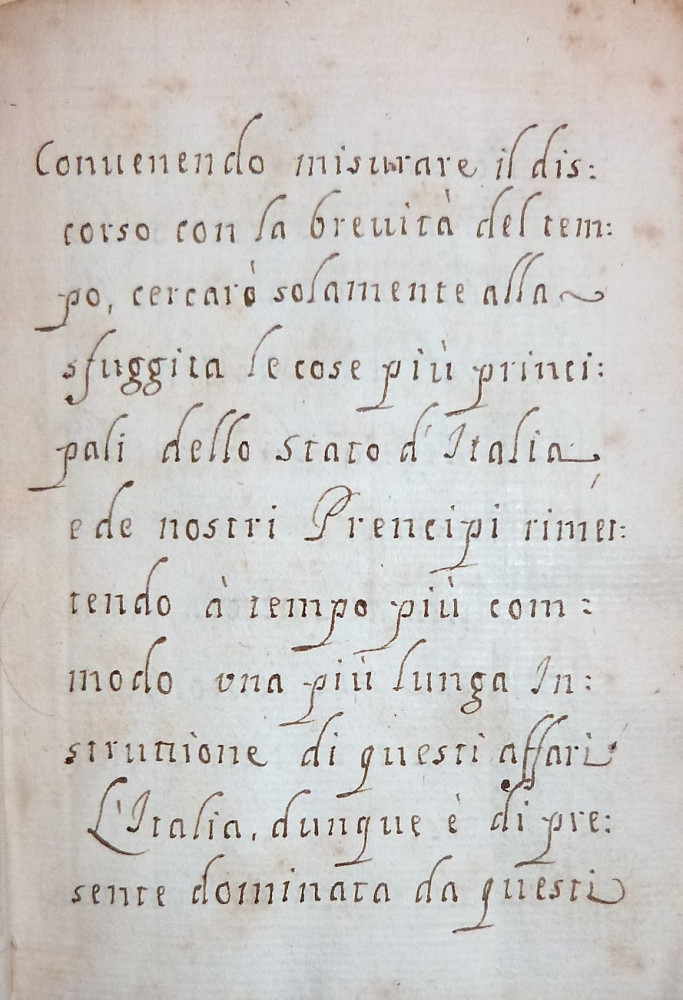 Conuenendo misurare il dis:
corso con la breuità del tem:
po, cercarò solamente alla
sfuggita le cose più princi:
pali dello stato d'Italia,
e de nostri Prencipi rimet:
tendo à tempo più com:
modo vna più lunga In:
struttione di questi affari
L'Italia, dunque è di pre:
sente dominata da questi